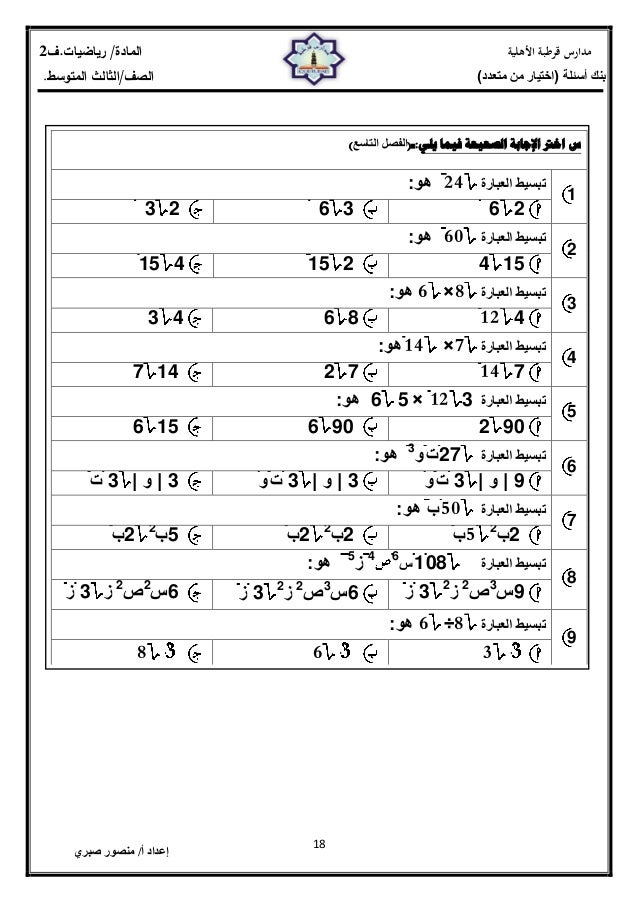 مدارس قرطبة الأهلية
المادة/ رياضيات.ف2
بنك أسئلة (اختيار من متعدد)
الصف/الثالث المتوسط.
س اختر الإجابة الصحيحة فيما يلي:-(الفصل التاسع)
1) تبسيط العبارة √24 هو:
أ) 2√6 ب) 3√6 ج) 2√3
2) تبسيط العبارة √60 هو:
أ) 15√4 ب) 2√15 ج) 4√15
3) تبسيط العبارة √8 × √6 هو:
أ) 4√12 ب) 8√6 ج) 4√3
4) تبسيط العبارة √7 × √14 هو:
أ) 7√14 ب) 7√2 ج) 14√7
5) تبسيط العبارة 3√12 × 5√6 هو:
أ) 90√2 ب) 90√6 ج) 15√6
6) تبسيط العبارة √27ت و3 هو:
أ) 9 | و | √3 ت و ب) 3 | و | √3 ت و ج) 3 | و | √3 ت
7) تبسيط العبارة √50ب هو:
أ) 2ب2√5ب ب) 2ب2√2ب ج) 5ب2√2ب
8) تبسيط العبارة √108س6ص4ز5 هو:
أ) 9س3ص2ز2√3 ز ب) 6س3ص2ز2√3 ز ج) 6س2ص2ز√3 ز
9) تبسيط العبارة √8 ÷ √6 هو:
أ) 3√3 ب) 3√6 ج) 3√8
18
إعداد أ/ منصور صبري